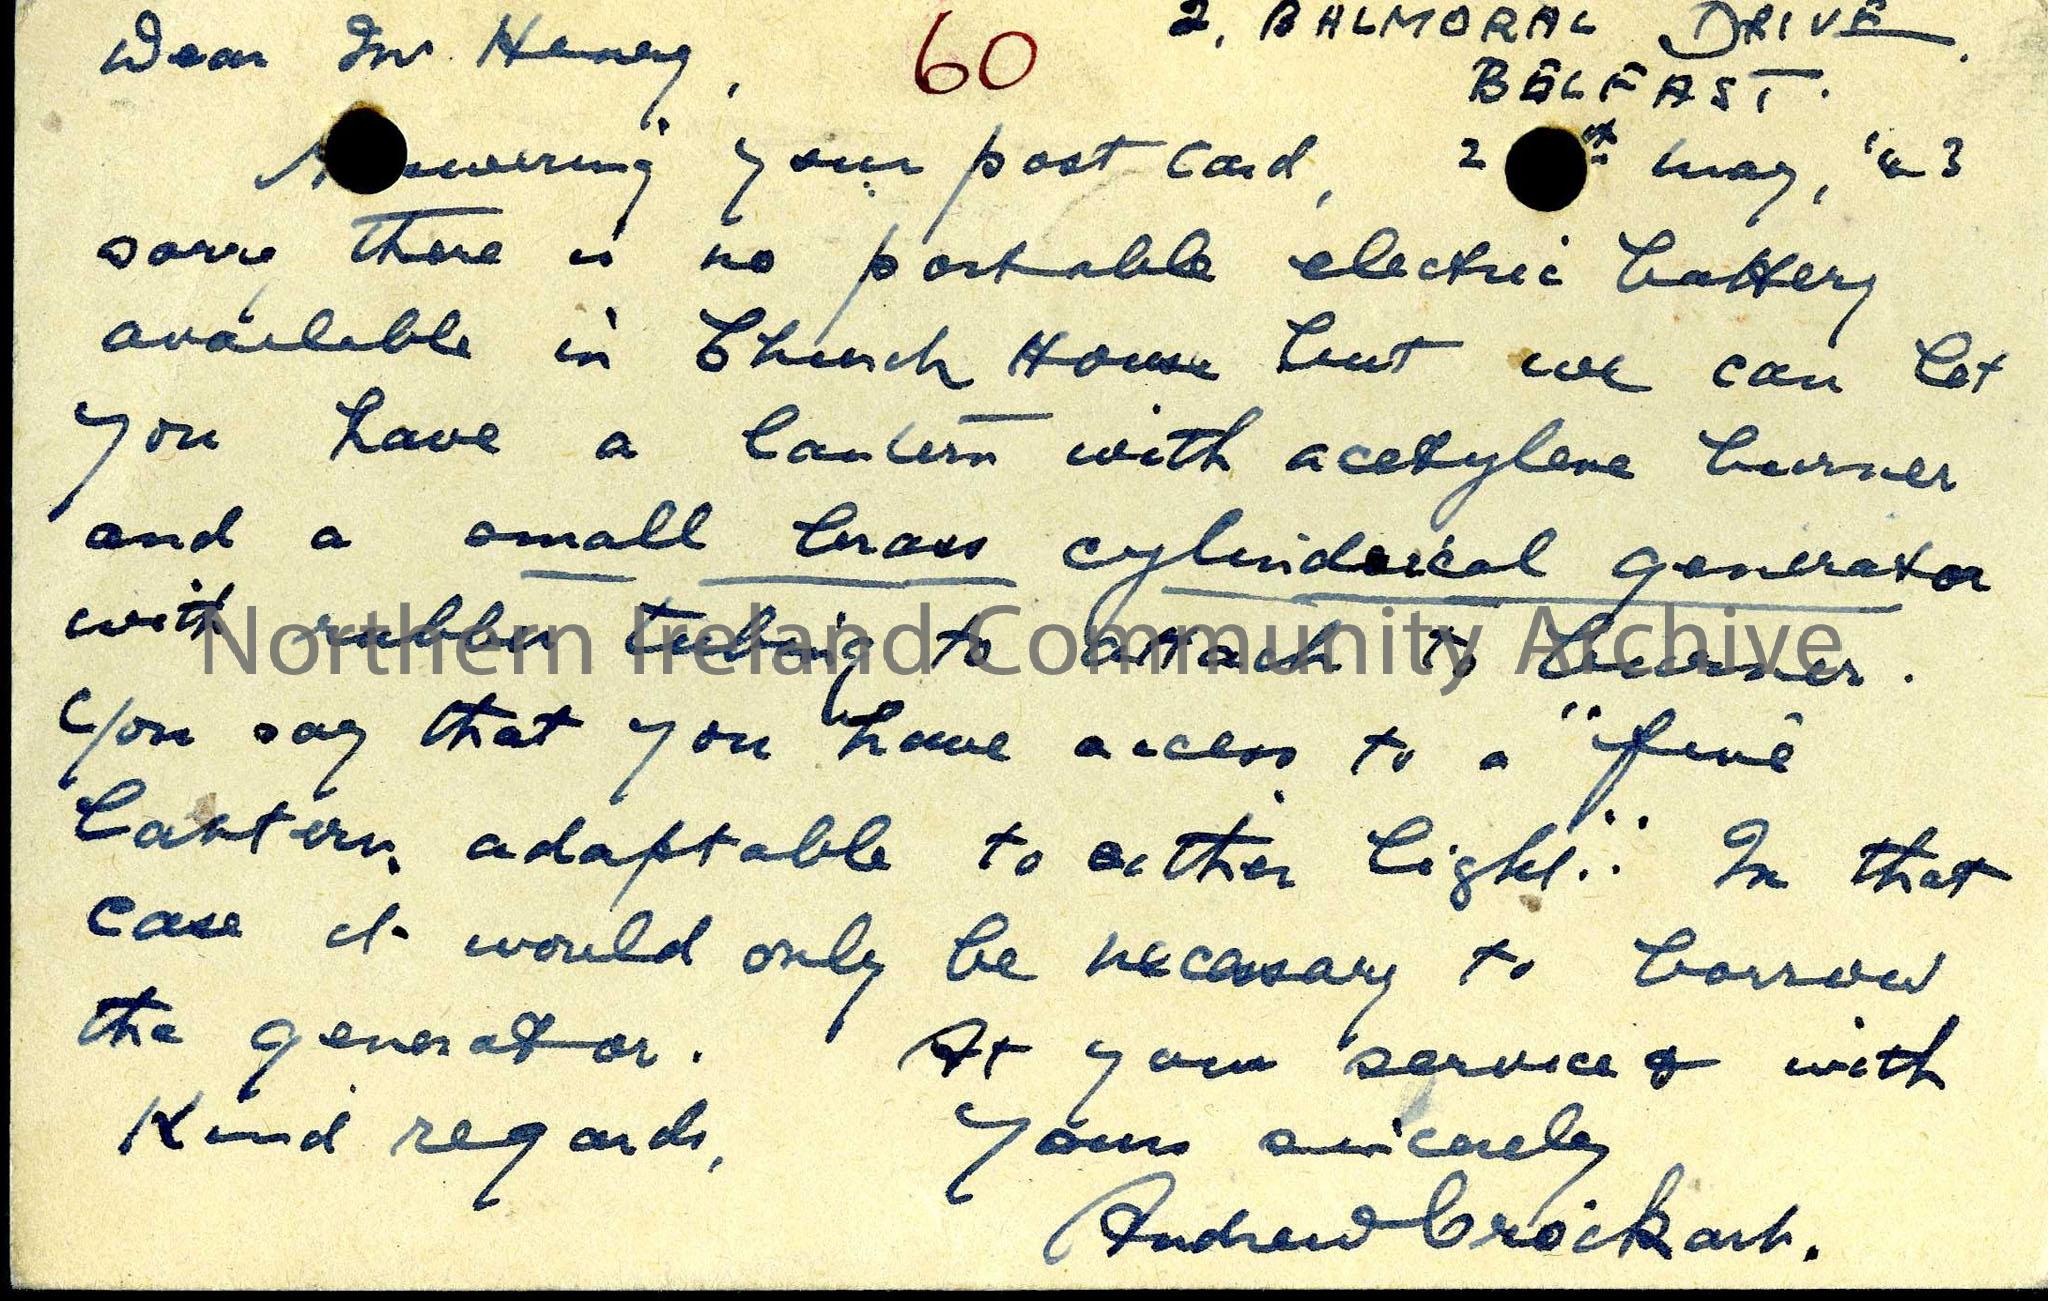 2, BALMORAL DRIVE.
BELFAST.
Dear Mr. Henry,
60
Answering your post card, 2 th May, '43
sorry there is no portable electric battery
available in Church House but we can let
you have a lantern with acetylene burner
and a small brass cylinderical generator
with rubber tubing to attach to burner.
You say that you have access to a "fine
lantern, adaptable to either light." In that
case it would only be necessary to borrow
the generator. At your service & with
Kind regards, Yours sincerely
Andrew Crockart.
Northern Ireland Community Archive